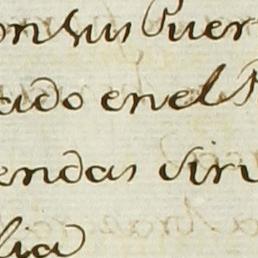 on sus Puer
ado en el P
endas siri
lia